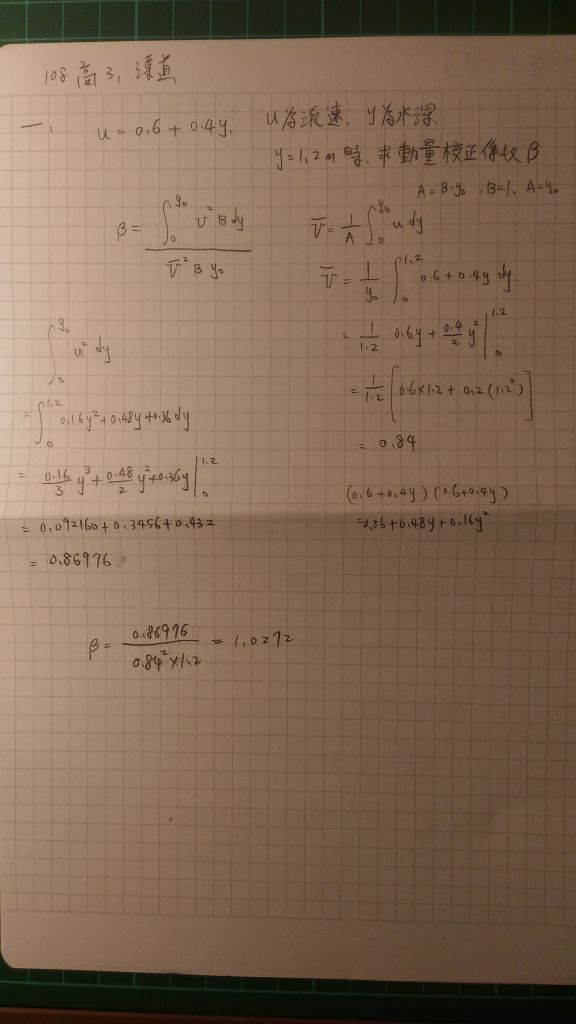 108 高3, 渠道
一、 u = 0.6 + 0.4y, u為流速、y為水深
y=1.2m 時、求動量校正係數 β
A=B·y₀ , B=1, A=y₀
β = ∫₀^y₀ v² B dy / V̅² B y₀
V̅ = 1/A ∫₀^y₀ u dy
V̅ = 1/y₀ ∫₀^1.2 0.6 + 0.4y dy.
= 1/1.2 0.6y + 0.4/2 y² |₀^1.2
= 1/1.2 [0.6×1.2 + 0.2(1.2²)]
= 0.84
(0.6+0.4y)(0.6+0.4y)
=0.36+0.48y+0.16y²
∫₀^y₀ u² dy
= ∫₀^1.2 0.16y²+0.48y+0.36 dy
= 0.16/3 y³ + 0.48/2 y² + 0.36y |₀^1.2
= 0.092160 + 0.3456 + 0.432
= 0.86976
β = 0.86976 / 0.84²×1.2 = 1.0272